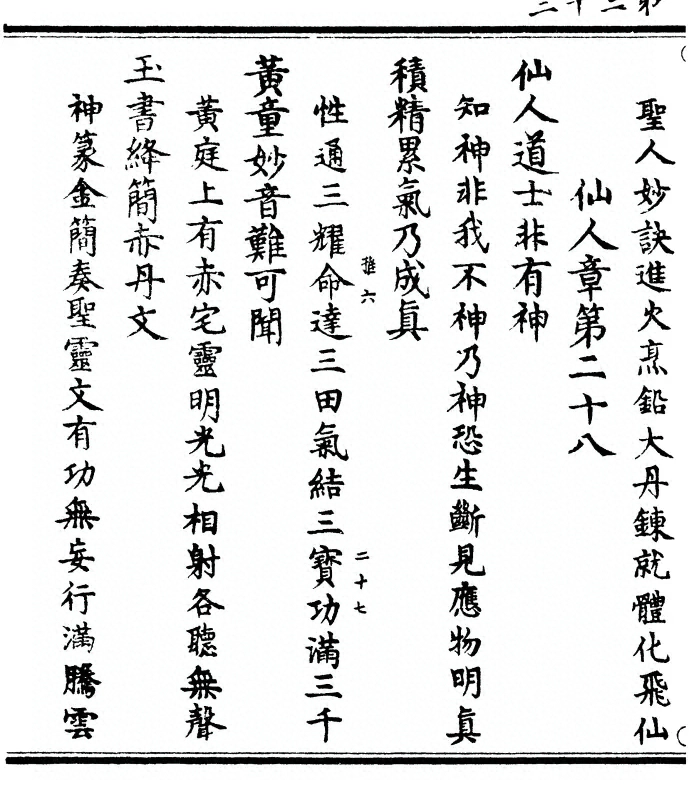 聖人妙訣進火烹鉛大丹鍊就體化飛仙
仙人章第二十八
仙人道士非有神
知神非我不神乃神恐生斷見應物明真
積精累氣乃成真
性通三耀命達三田氣結三寶功滿三千
推六
二十七
黃童妙音難可聞
黃庭上有赤宅靈明光光相射各聽無聲
玉書絳簡赤丹文
神篆金簡奏聖靈文有功無妄行滿騰雲